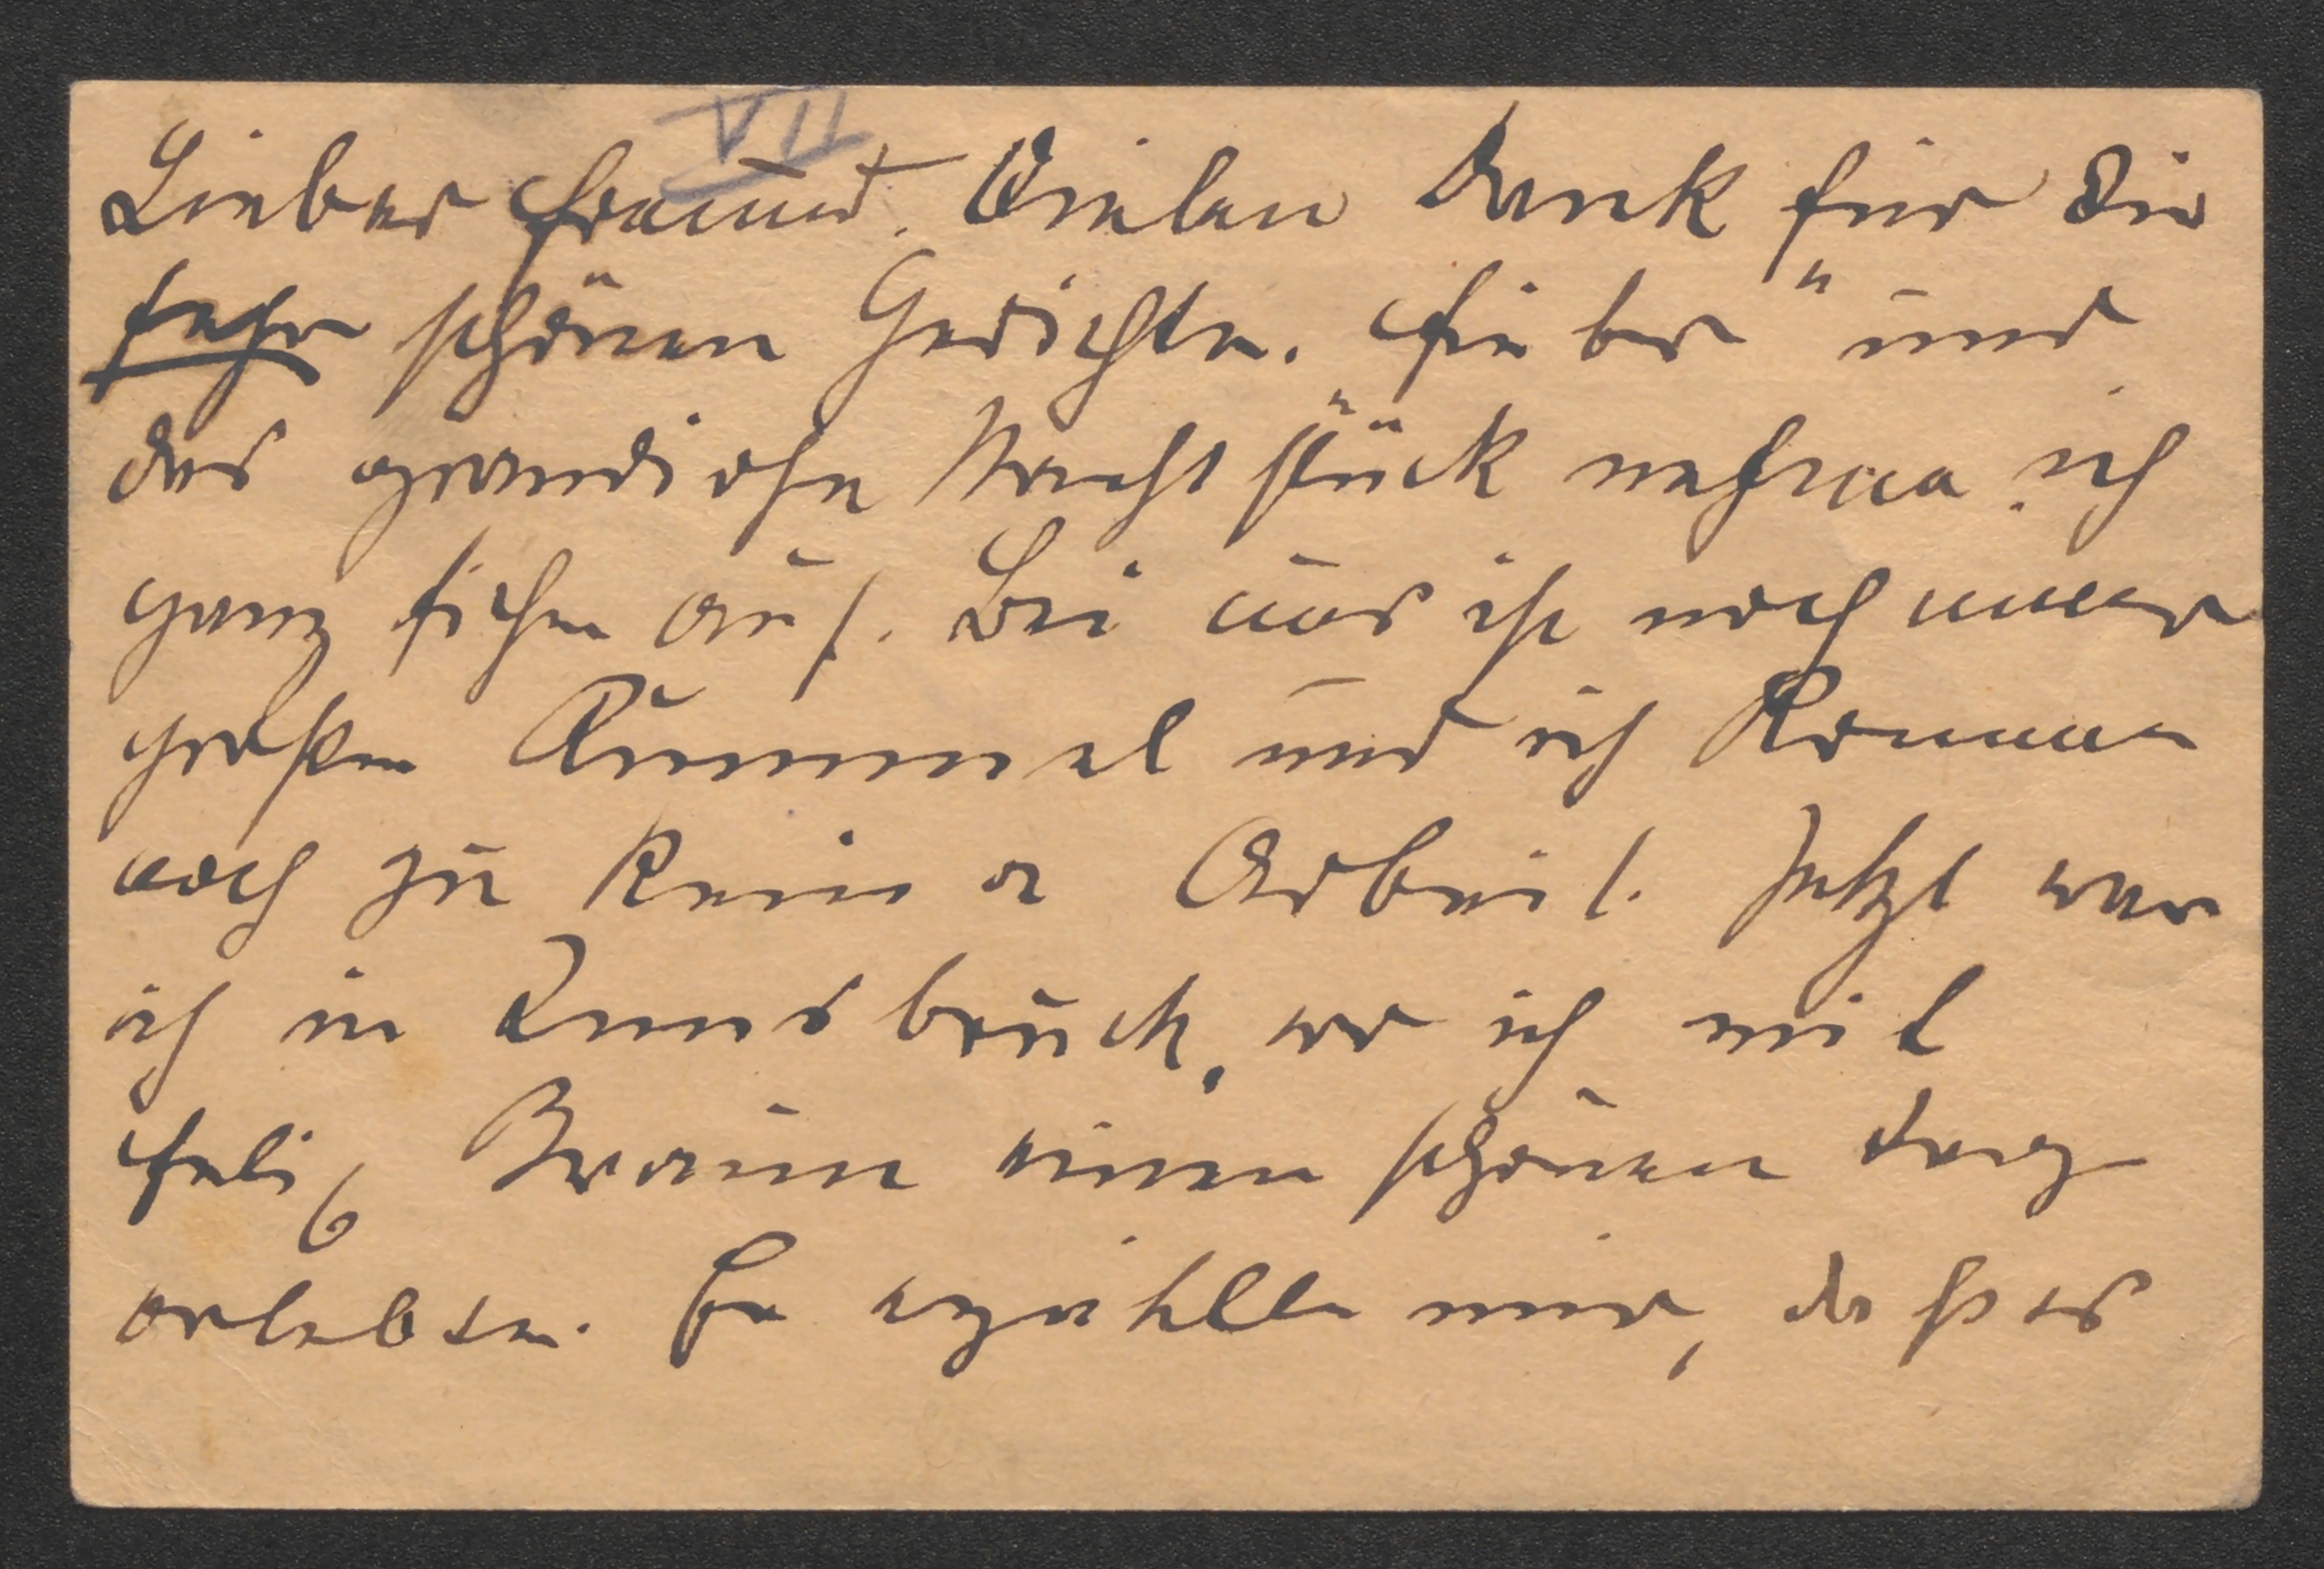 VII
Lieber Freund. Vielen Dank für die
sehr schönen Gedichte. Fieber" und
das grandiose Nachtstück nehme ich
ganz sicher auf. Bei uns ist noch immer
großer Rummel und ich komme
noch zu keiner Arbeit. Jetzt war
ich in Innsbruck, wo ich mit
Felix Braun einen schönen Tag
erlebte. Er erzählte mir, daß es